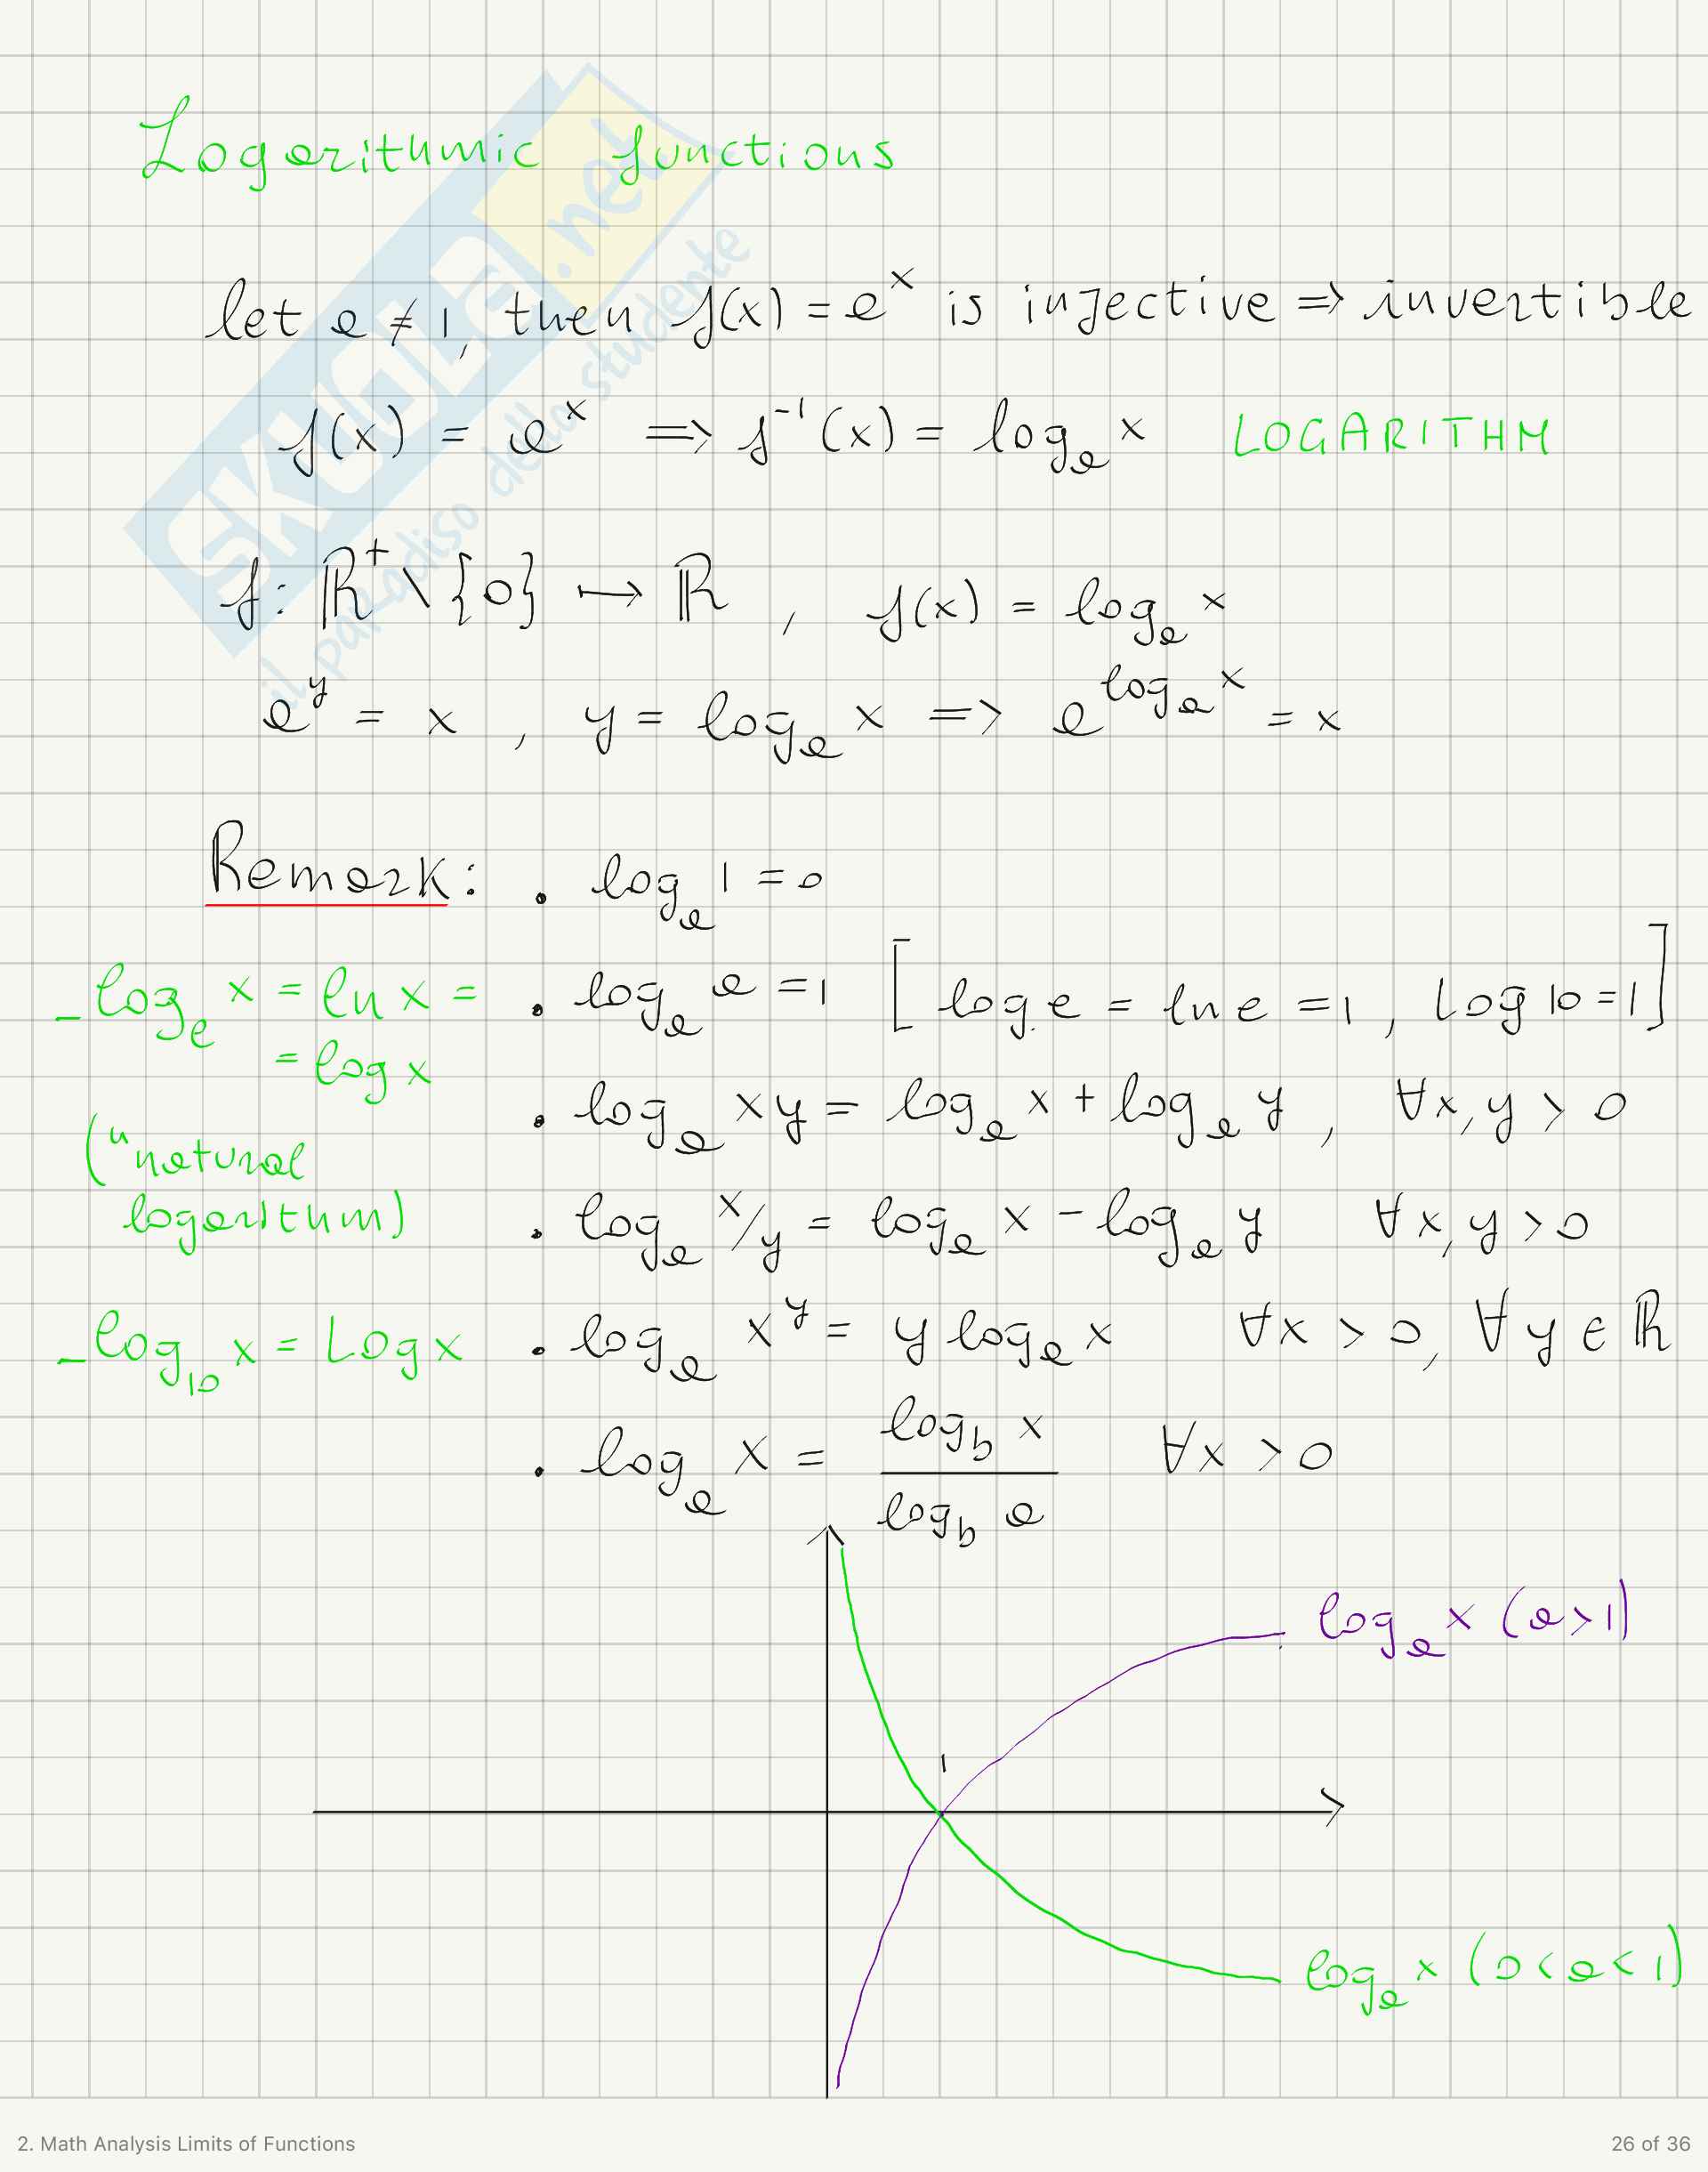 Logarithmic functions
let a ≠ 1, then f(x) = a^x is injective => invertible
f(x) = a^x => f^-1(x) = log_a x LOGARITHM
f: ℝ^+ \ {0} ↦ ℝ , f(x) = log_a x
a^y = x , y = log_a x => a^(log_a x) = x
Remark: . log_a 1 = 0
- log_e x = ln x = . log_a a = 1 [log e = ln e = 1, Log 10 = 1]
= log x
. log_a xy = log_a x + log_a y , ∀x, y > 0
("natural
logarithm)
. log_a x/y = log_a x - log_a y ∀x, y > 0
- log_10 x = Log x . log_a x^y = y log_a x ∀x > 0, ∀y ∈ ℝ
. log_a x = log_b x / log_b a ∀x > 0
log_a x (a > 1)
1
log_a x (0 < a < 1)
SKUOLA.net
il paradiso dello studente
2. Math Analysis Limits of Functions
26 of 36